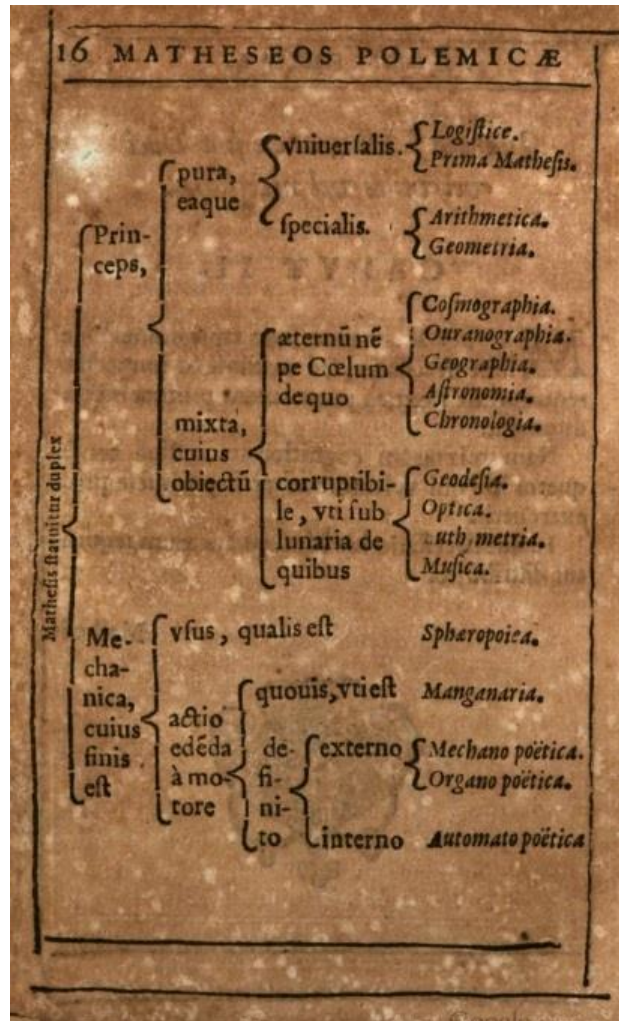 16 MATHESEOS POLEMICÆ
Mathesis statuitur duplex
Prin-
ceps,
pura,
eaque
vniuersalis.
Logistice.
Prima Mathesis.
specialis.
Arithmetica.
Geometria.
mixta,
cuius
obiectū
æternū nē
pe Cœlum
de quo
Cosmographia.
Ouranographia.
Geographia.
Astronomia.
Chronologia.
corruptibi-
le, vti sub
lunaria de
quibus
Geodesia.
Optica.
uth metria.
Musica.
Me-
cha-
nica,
cuius
finis
est
vsus, qualis est
Sphæropoiea.
actio
edēda
à mo-
tore
quouis, vti est
Manganaria.
de-
fi-
ni-
to
externo
Mechano poëtica.
Organo poëtica.
interno
Automato poëtica